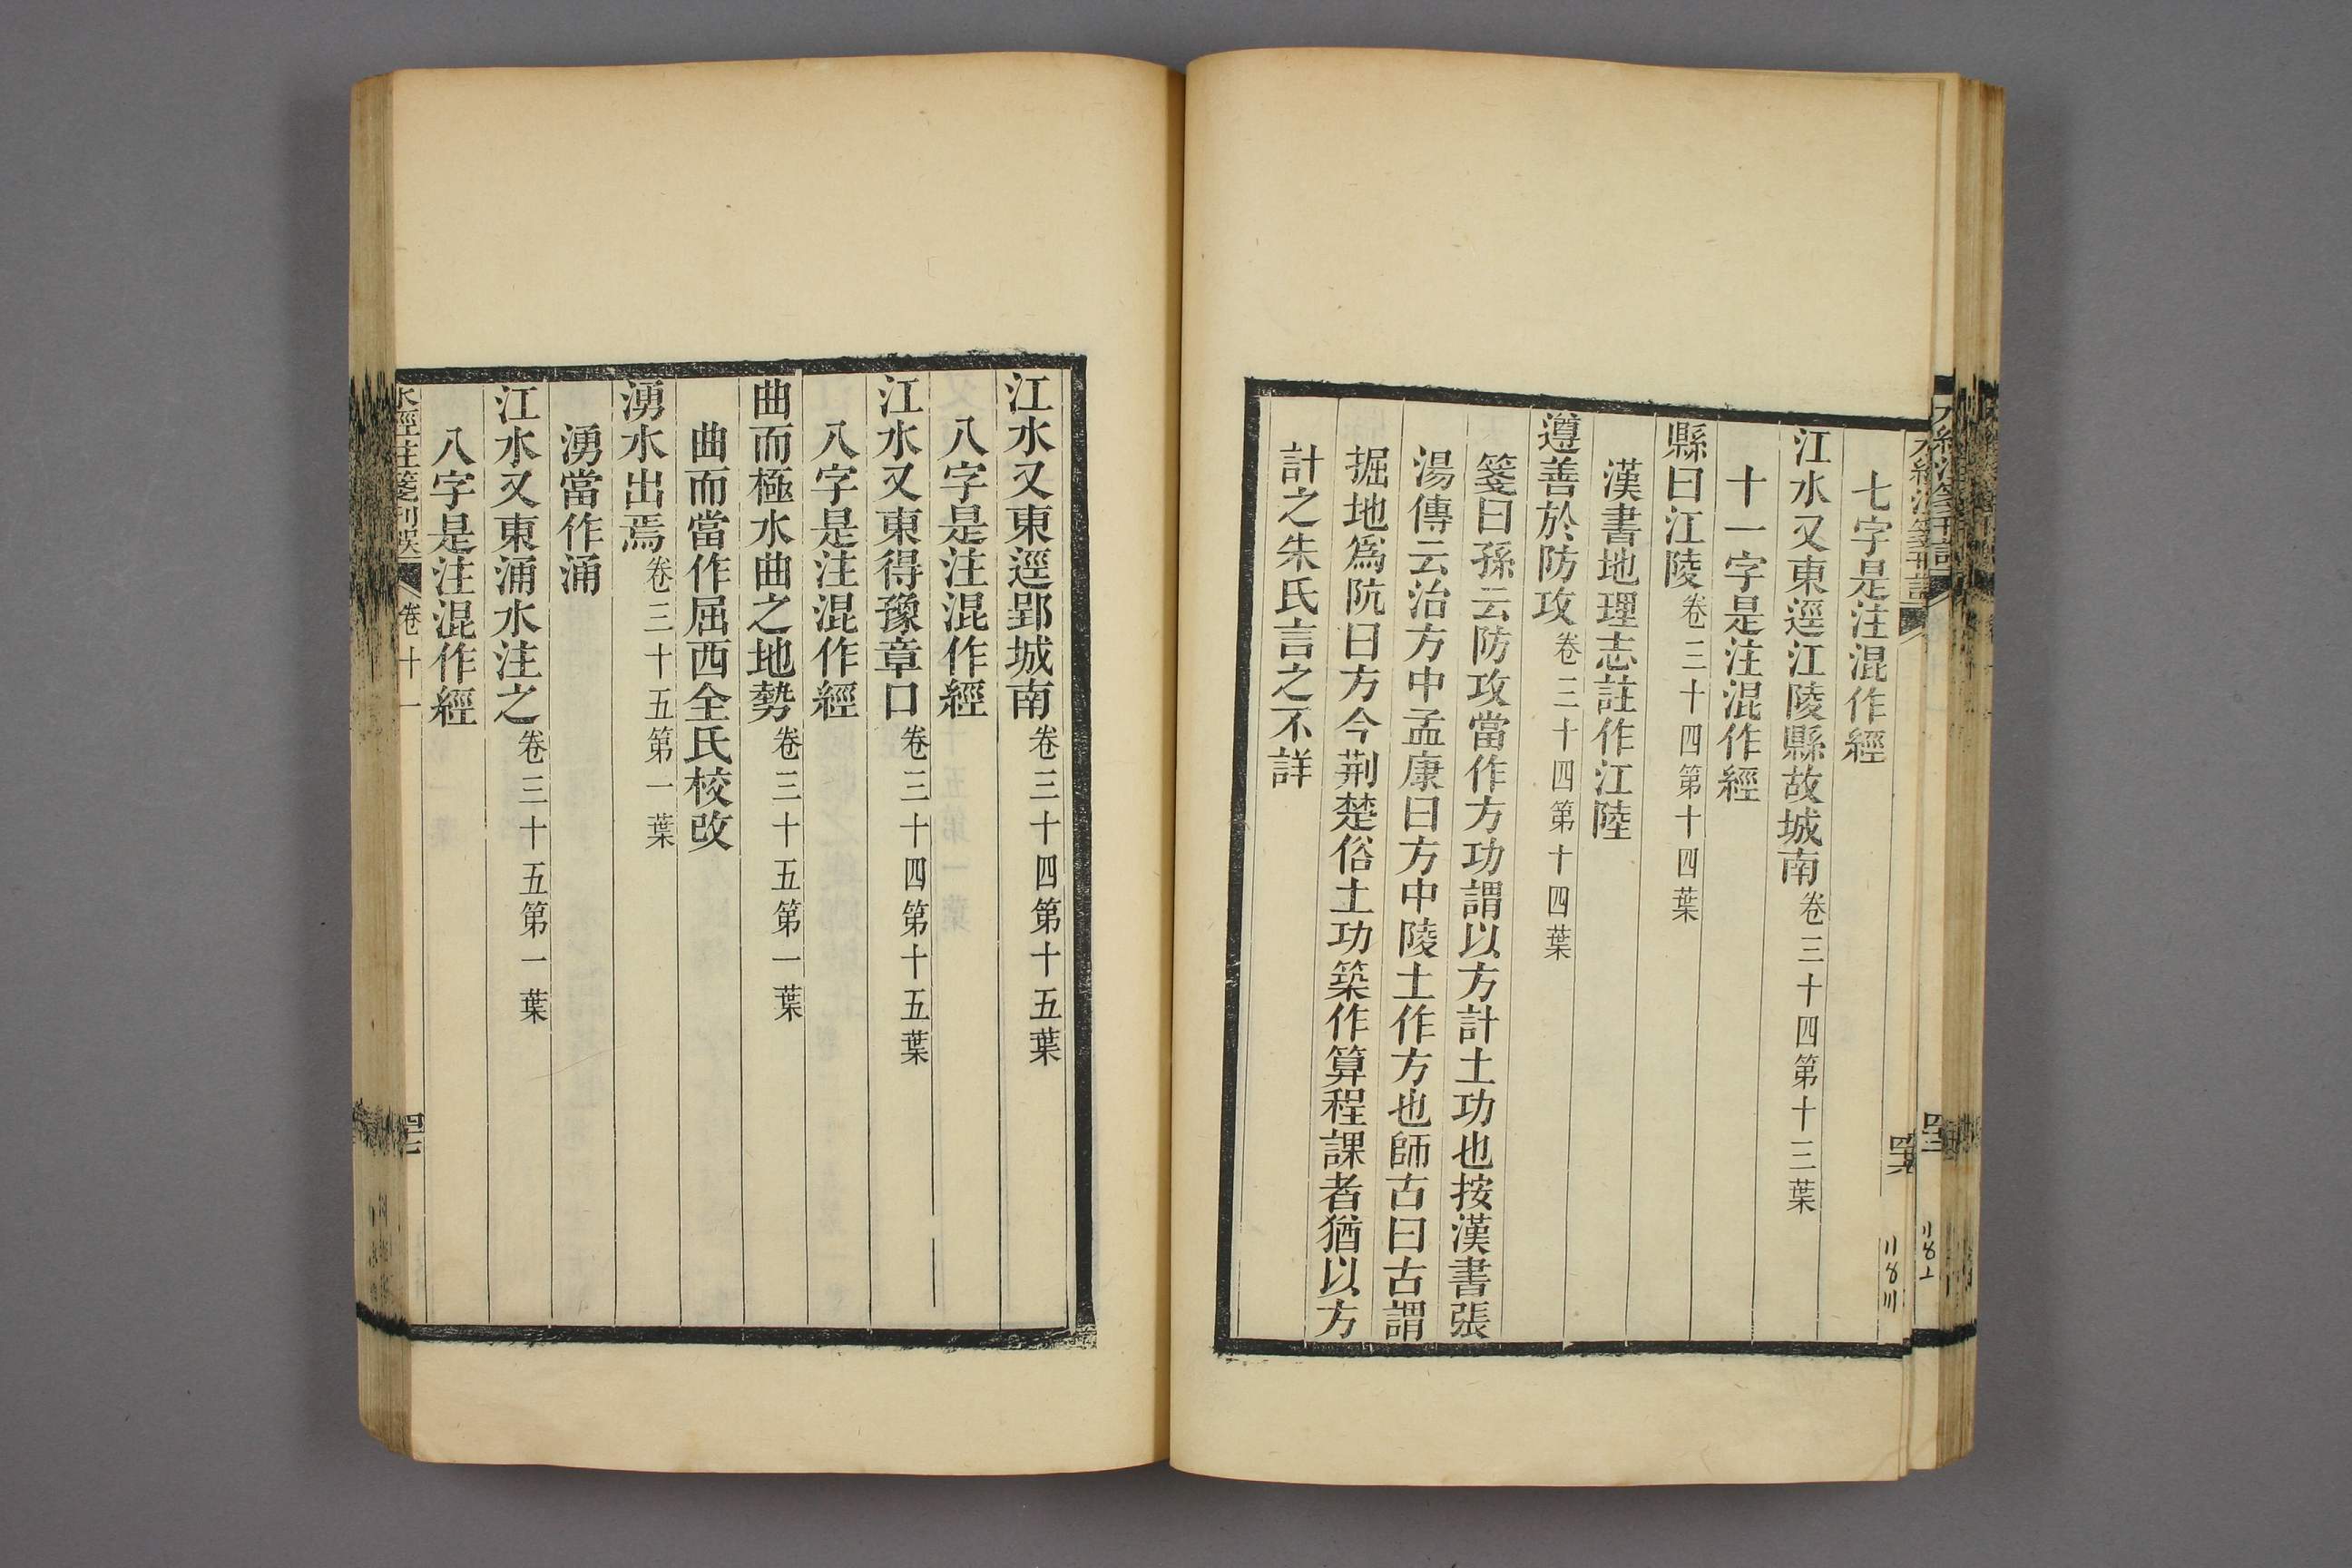 七字是注混作經
江水又東逕江陵縣故城南卷三十四第十三葉
十一字是注混作經
縣曰江陵卷三十四第十四葉
漢書地理志註作江陸
遵善於防攻卷三十四第十四葉
箋曰孫云防攻當作方功謂以方計土功也按漢書張
湯傳云治方中孟康曰方中陵土作方也師古曰古謂
掘地爲阬曰方今荆楚俗土功築作算程課者猶以方
計之朱氏言之不詳
江水又東逕郢城南卷三十四第十五葉
八字是注混作經
江水又東得豫章口卷三十四第十五葉
八字是注混作經
曲而極水曲之地勢卷三十五第一葉
曲而當作屈西全氏校改
湧水出焉卷三十五第一葉
湧當作涌
江水又東涌水注之卷三十五第一葉
八字是注混作經
水經注箋刊誤 卷十一